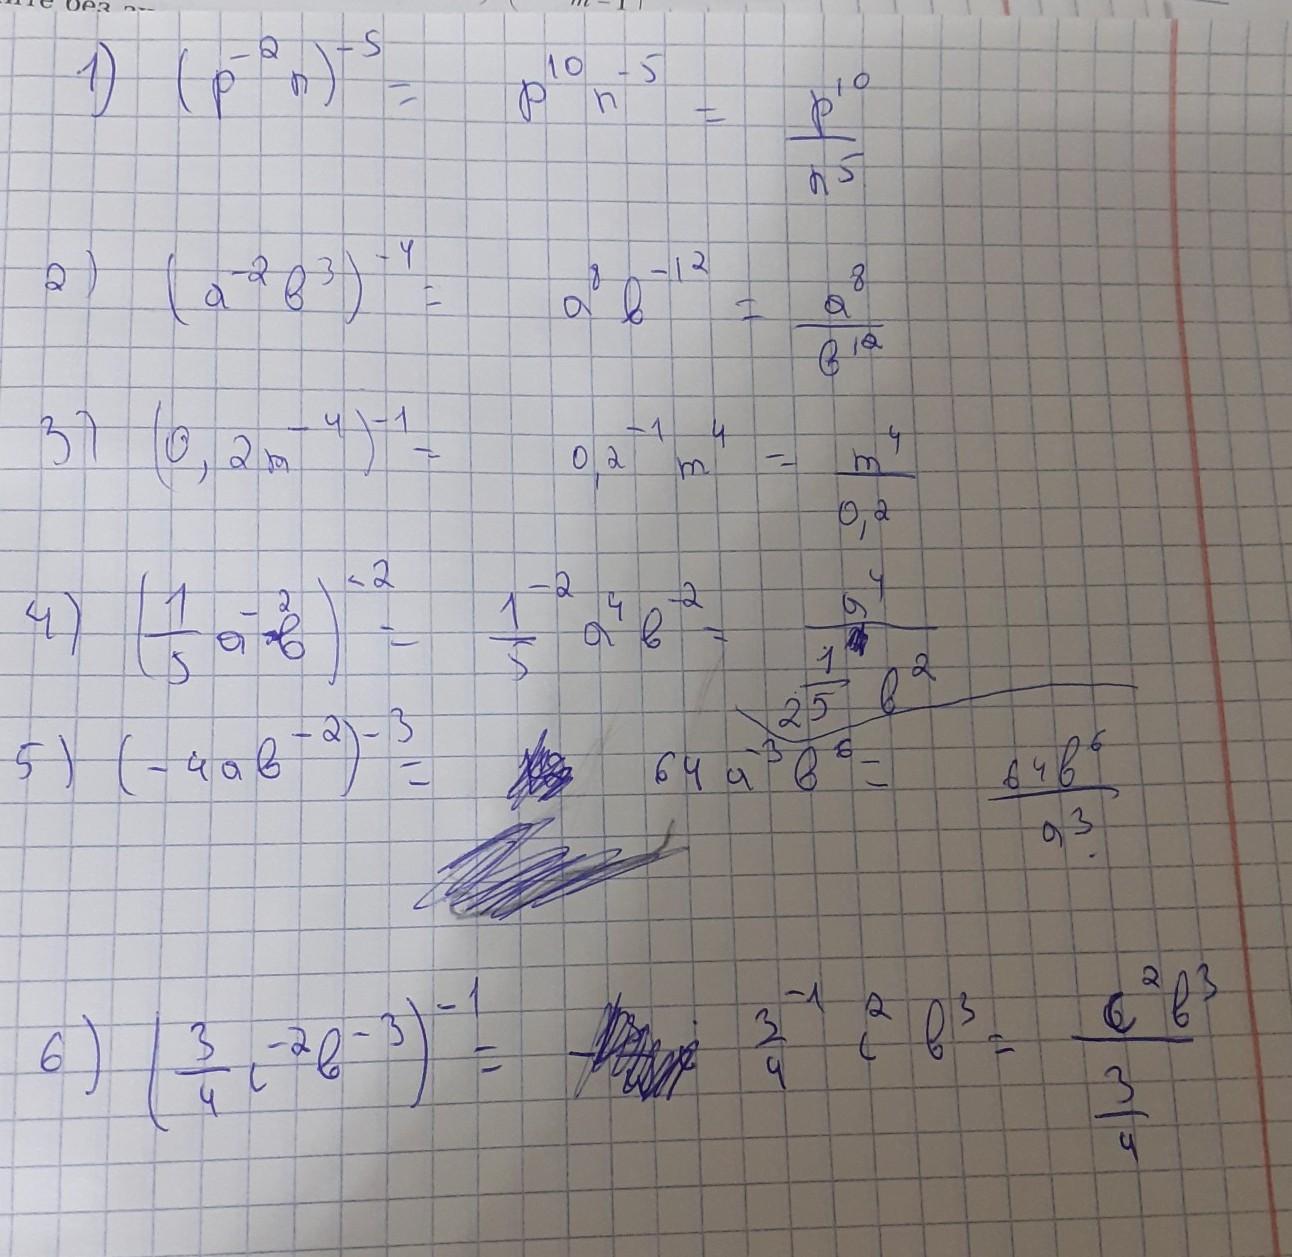 1) (p⁻²n)⁻⁵ = p¹⁰ n⁻⁵ = p¹⁰/n⁵
2) (a⁻²b³)⁻⁴ = a⁸ b⁻¹² = a⁸/b¹²
3) (0,2m⁻⁴)⁻¹ = 0,2⁻¹ m⁴ = m⁴/0,2
4) (1/5 a⁻²b)⁻² = 1/5⁻² a⁴ b⁻² = a⁴/(1/25 b²)
5) (-4ab⁻²)⁻³ = 64 a⁻³ b⁶ = 64b⁶/a³.
6) (3/4 c⁻²b⁻³)⁻¹ = 3/4⁻¹ c² b³ = c²b³/(3/4)